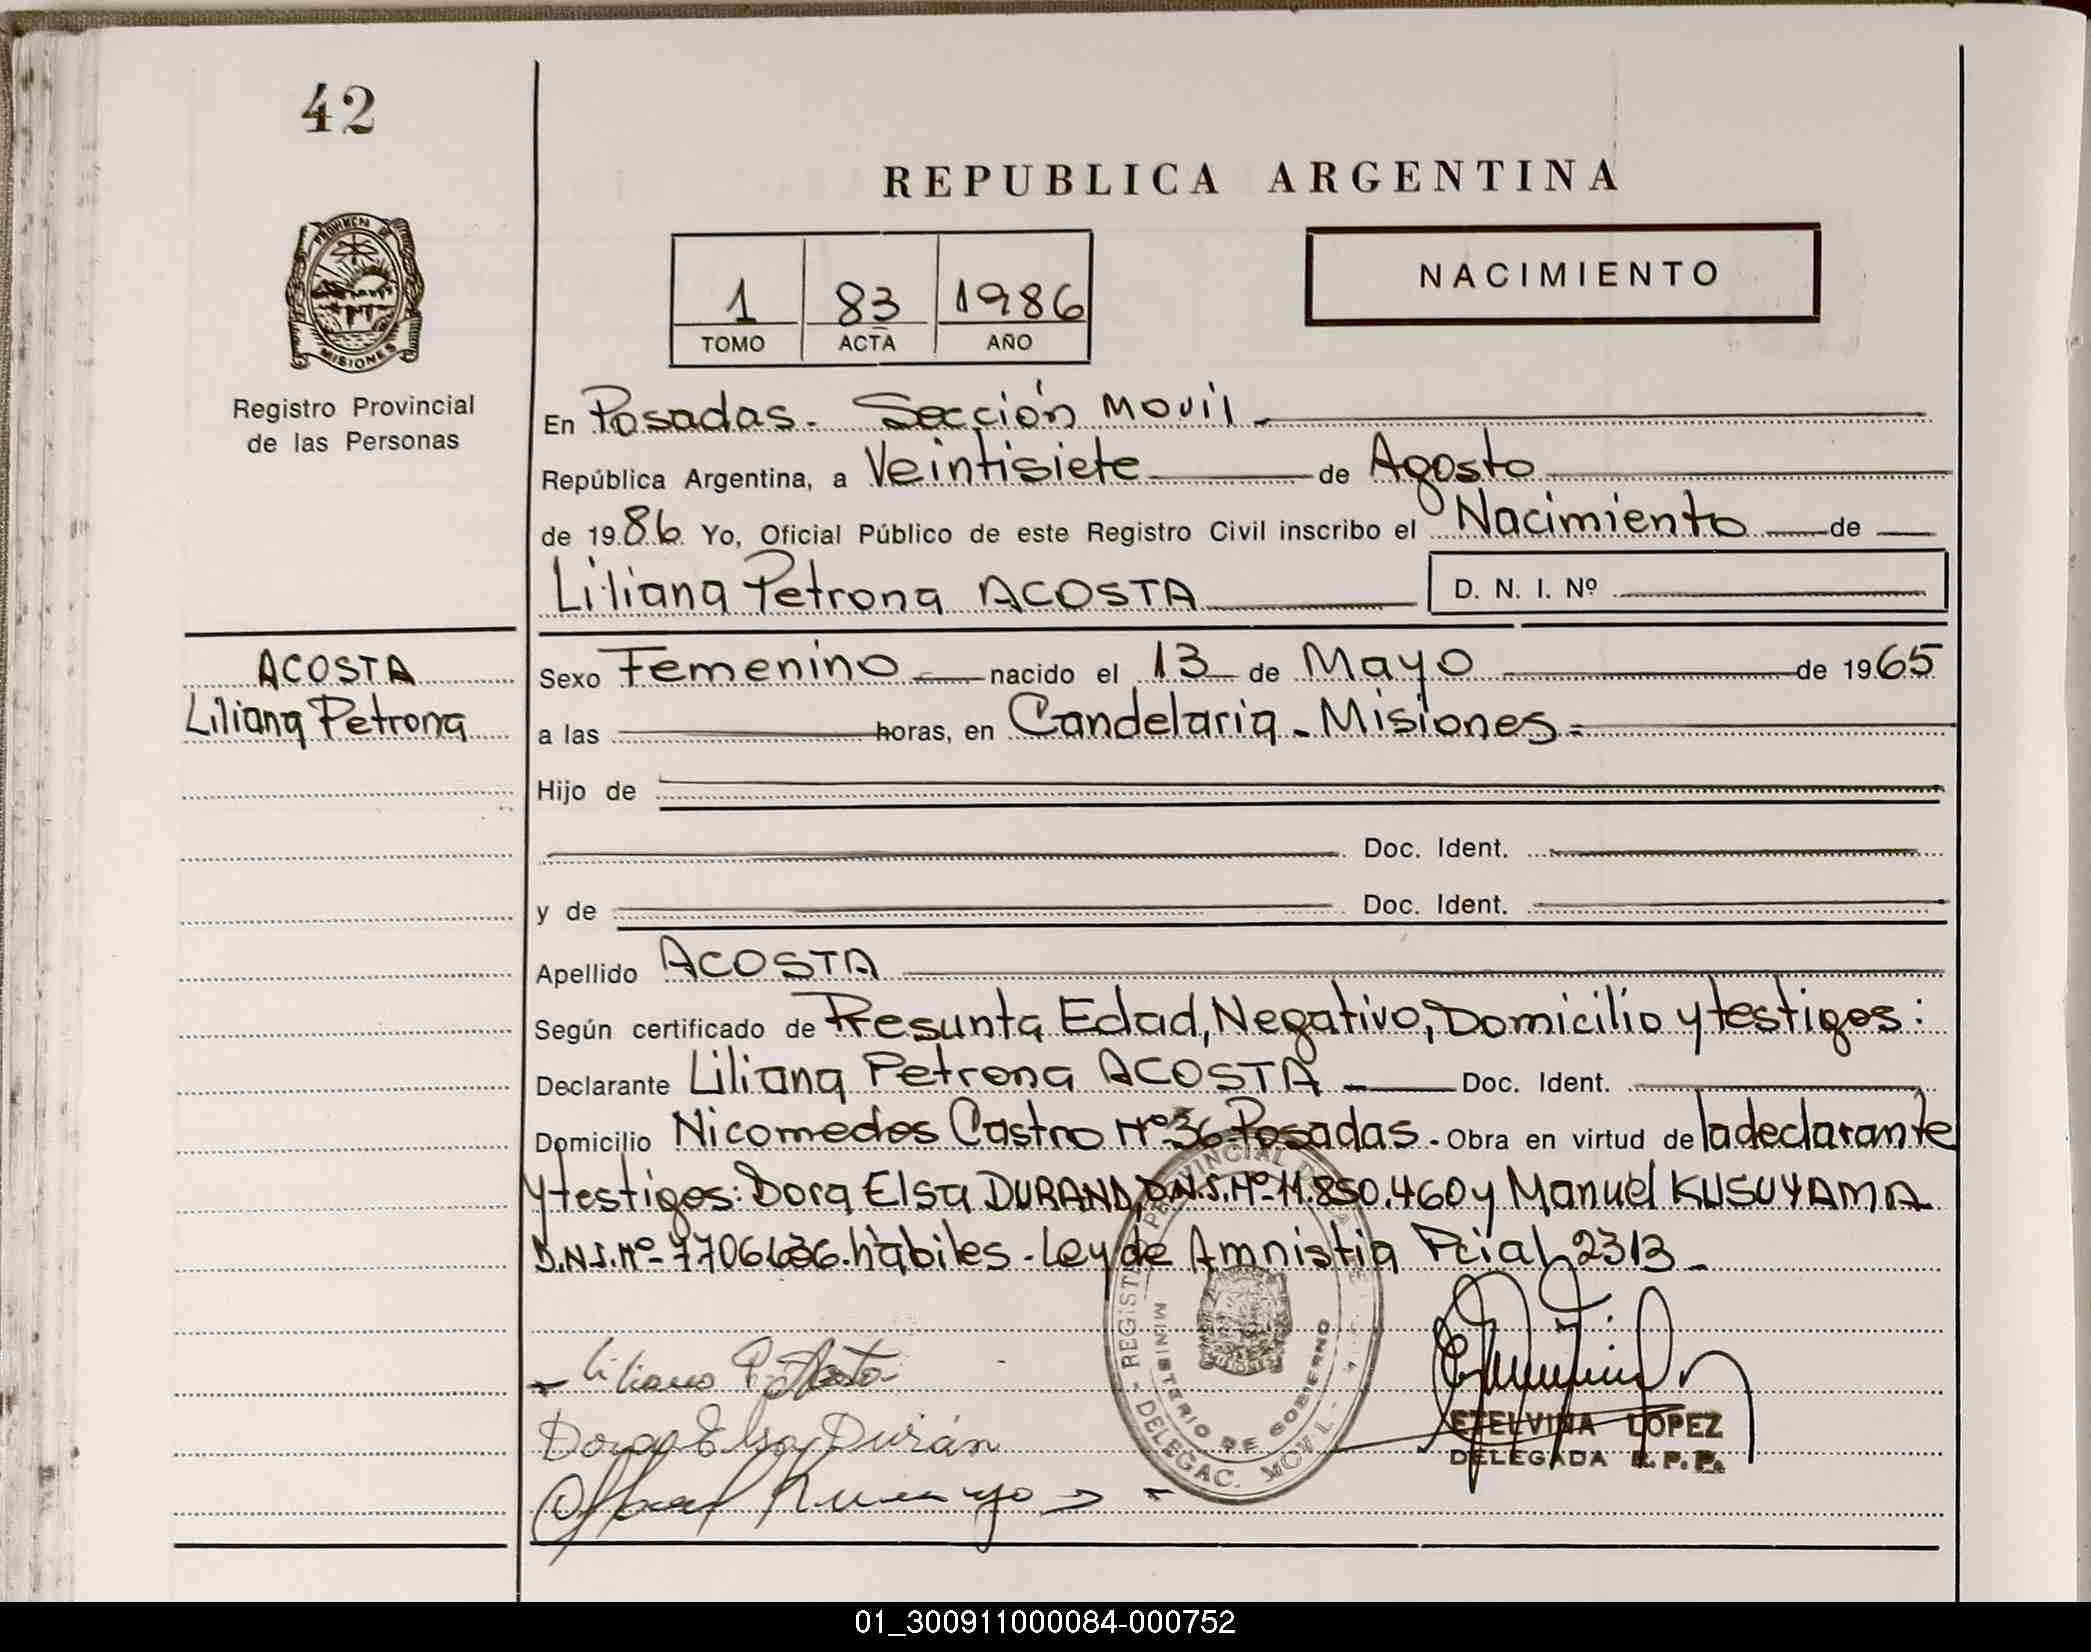 42
REPUBLICA ARGENTINA
PROVINCIA DE
MISIONES
Registro Provincial
de las Personas
1 83 1986
TOMO ACTA AÑO
NACIMIENTO
En Posadas. Sección Movil
República Argentina, a Veintisiete de Agosto
de 1986 Yo, Oficial Público de este Registro Civil inscribo el Nacimiento de
Liliana Petrona ACOSTA D. N. I. Nº
ACOSTA
Liliana Petrona
Sexo Femenino nacido el 13 de Mayo de 1965
a las horas, en Candelaria - Misiones
Hijo de
Doc. Ident.
y de Doc. Ident.
Apellido ACOSTA
Según certificado de Presunta Edad, Negativo, Domicilio y testigos:
Declarante Liliana Petrona ACOSTA Doc. Ident.
Domicilio Nicomedes Castro Nº 36 Posadas. Obra en virtud de la declarante
y testigos: Dora Elsa DURAND, D.N.I. Nº 11.850.460 y Manuel KUSUYAMA
D.N.I. Nº habiles - Ley de Amnistia Pcial 2313
REGISTRO PROVINCIAL DE
MINISTERIO DE GOBIERNO
DELEGAC. MOVIL
Liliana P. Acosta
Dora Elsa Durán
ETELVINA LOPEZ
DELEGADA R. P. P.
01_300911000084-000752